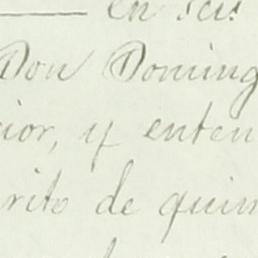 en seis
Don Doming
cior, y enten
rito de quin